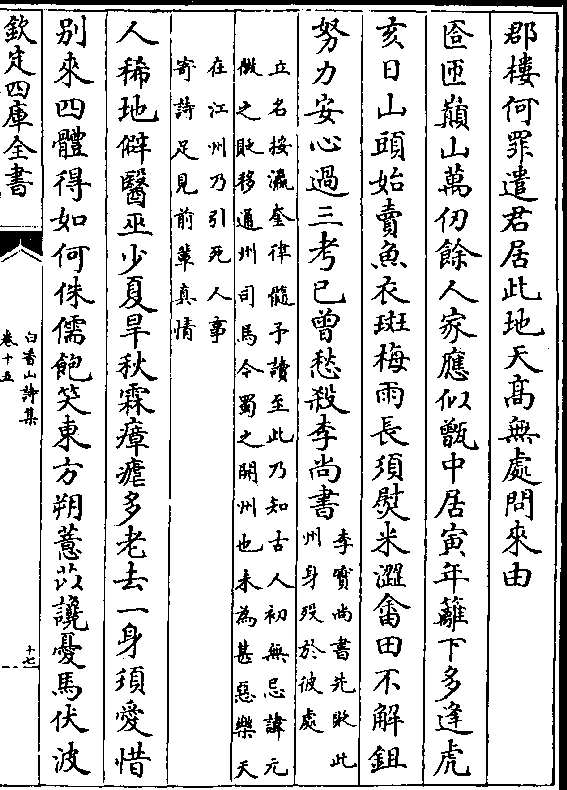 郡樓何罪遣君居此地天高無處問來由
匼匝巔山萬仞餘人家應似甑中居寅年籬下多逢虎
亥日山頭始賣魚衣斑梅雨長須熨米澀畬田不解鉏
努力安心過三考已曾愁殺李尚書
李實尚書先貶此
州身殁於彼處
立名按瀛奎律髓予讀至此乃知古人初無忌諱元
微之貶移通州司馬今蜀之開州也未為甚惡樂天
在江州乃引死人事
寄詩足見前輩真情
人稀地僻醫巫少夏旱秋霖瘴瘧多老去一身須愛惜
別來四體得如何侏儒飽笑東方朔薏苡讒憂馬伏波
欽定四庫全書
白香山詩集
卷十五
十七